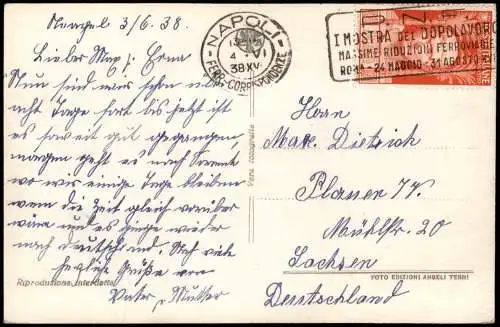 Neapel 3/6. 38.
Lieber Max, Erna
Nun sind wir schon über
acht Tage fort bis jetzt ist
es soweit gut gegangen,
morgen geht es nach Sorrent
wo wir einige Tage bleiben
wenn die Zeit gleich vorüber
wäre und es ginge wieder
nach Deutschland. Seid viele
herzliche Grüße von
Vater u Mutter
Riproduzione Interdetta
Vera fotografia
NAPOLI
4 VI
38 XVI
FERR. CORRISPONDENZE
I MOSTRA DEL DOPOLAVORO
MASSIME RIDUZIONI FERROVIARIE
ROMA - 24 MAGGIO - 31 AGOSTO
Herrn
Max Dietrich
Plauen i/V.
Mühlstr. 20
Sachsen
Deutschland
FOTO EDIZIONI ANGELI TERNI